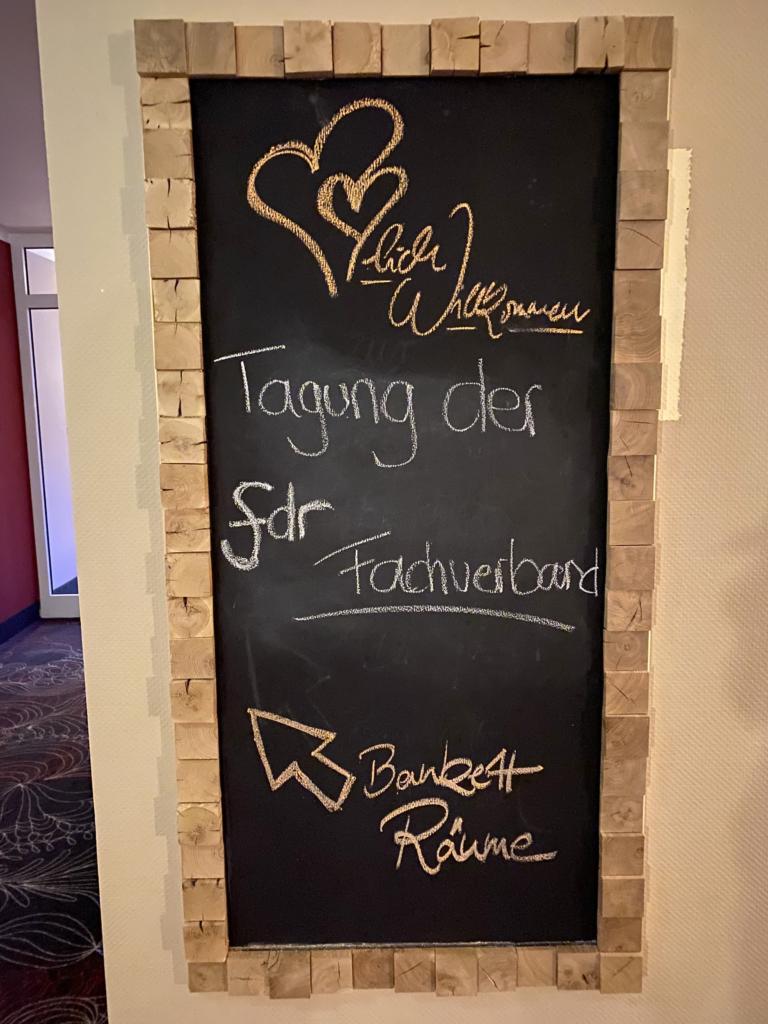 lich
Willkommen
Tagung der
fdr
Fachverband
Bankett
Räume